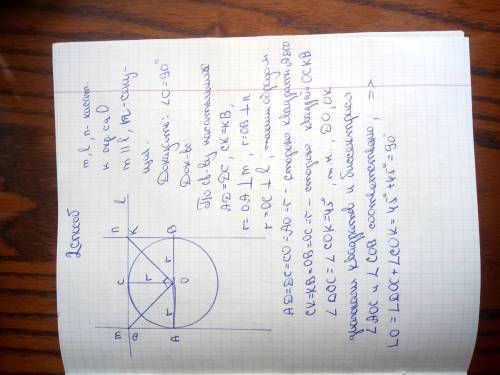 2 способ
m, l, n - касат.
к окр. с ц. O
m ∥ l, n - секу-
щая.
Доказать: ∠O = 90°
Док-во:
По св-ву касательных
AD = DC, CK = KB,
r = OA ⊥ m, r = OB ⊥ n
r = OC ⊥ l, таким образом
AD = DC = CO = AO = r - сторона квадрата ADCO
CK = KB = OB = OC = r - сторона квадрата OCKB
∠DOC = ∠COK = 45°, т.к. DO, OK
диагонали квадратов и биссектрисы
∠AOC и ∠COB соответственно, =>
∠O = ∠DOC + ∠COK = 45° + 45° = 90°
m
n
l
D
C
K
r
A
r
O
r
B